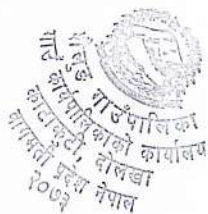 गाउँपालिका
गाउँ कार्यपालिकाको कार्यालय
दोलखा
बागमती प्रदेश नेपाल
२०७३